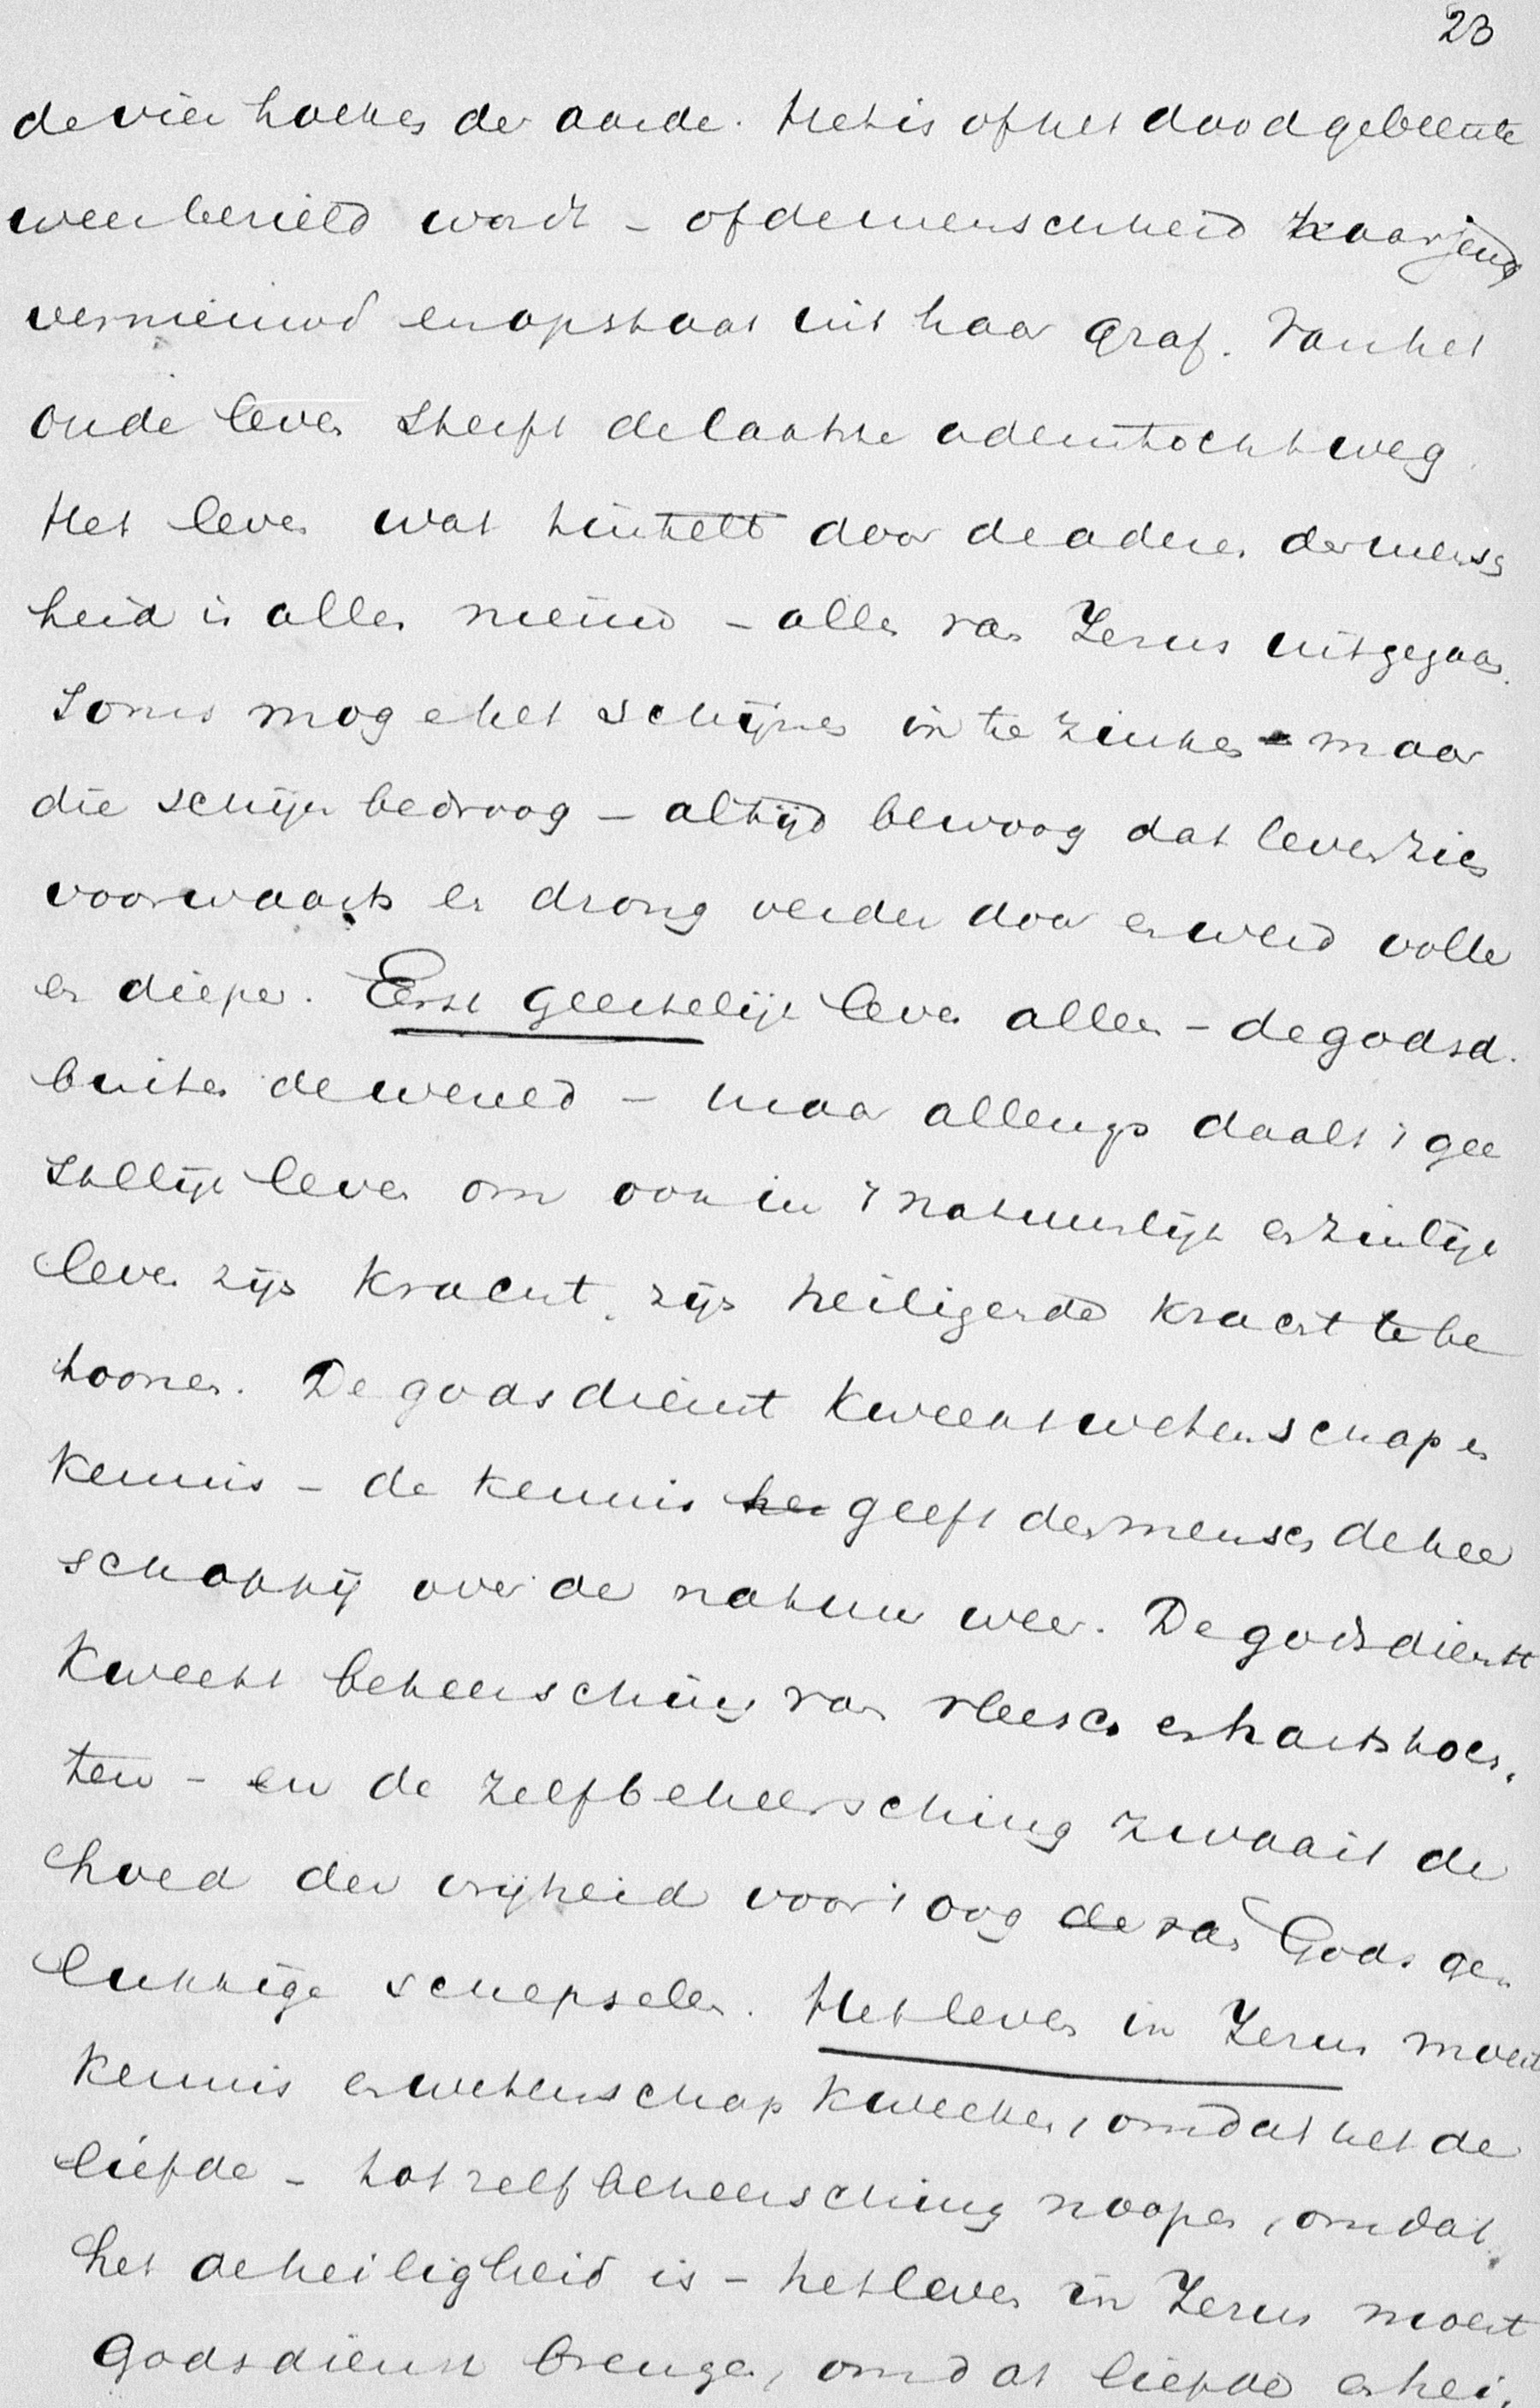 23
de vier hoeken der aarde. Het is of het dood gebeente
weer bezield wordt – of de menschheid haar jeugd
vernieuwd en opstaat uit haar graf. Van het
oude leven sterft de laatste ademtocht weg.
Het leven wat tintelt door de aderen der mensch
heid is alles nieuw – alles van Jezus uitgegaan.
Soms moge het schijnen in te zinken – maar
die schijn bedroog – altijd bewoog dat leven zich
voorwaarts en drong verder door en werd voller
en dieper. Eerst geestelijk leven alleen – de godsd.
buiten de wereld – maar allengs daalt 't gee
stelijk leven om ook in 't natuurlijk en zinlijk
leven zijn kracht, zijn heiligende kracht te be
toonen. De godsdienst kweekt wetenschap en
kennis – de kennis her geeft den mensch de heer
schappij over de natuur weer. De godsdienst
kweekt beheersching van vleesch en hartstoch.
ten – en de zelfbeheersching zwaait de
hoed der vrijheid voor 't oog de van Gods ge„
lukkige schepselen. Het leven in Jezus moest
kennis en wetenschap kweeken, omdat het de
liefde – tot zelfbeheersching noopen, omdat
het de heiligheid is – het leven in Jezus moest
Godsdienst brengen, omdat liefde en hei„